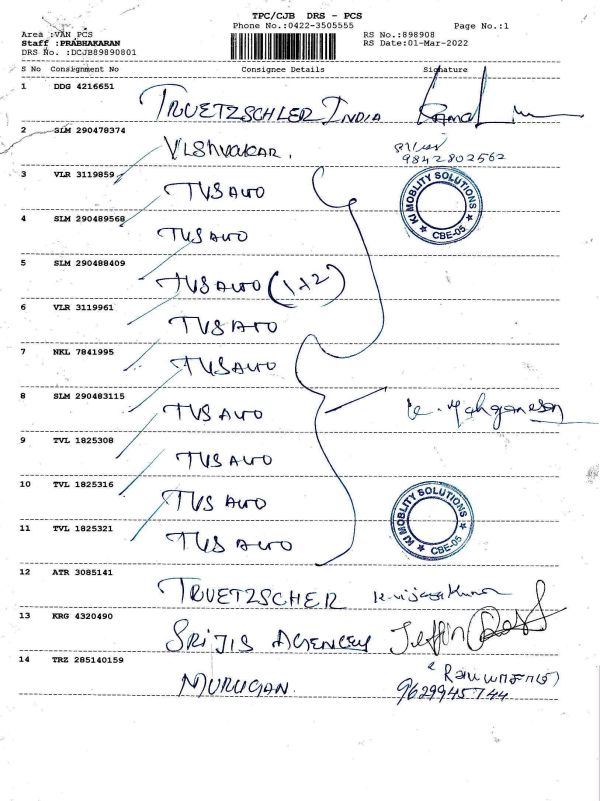 TPC/CJB DRS - PCS
Phone No.:0422-3505555 Page No.:1
Area :VAN PCS RS No.:898908
Staff :PRABHAKARAN RS Date:01-Mar-2022
DRS No. :DCJB89890801
S No Consignment No Consignee Details Signature
1 DDG 4216651
TRUETZSCHLER INDIA
2 SLM 290478374
VISHVAKAR.
9842802562
3 VLR 3119859
TVS AUTO
KI MOBLITY SOLUTIONS
CBE-05
4 SLM 290489568
TVS AUTO
5 SLM 290488409
TVS AUTO (1x2)
6 VLR 3119961
TVS AUTO
7 NKL 7841995
TVS AUTO
8 SLM 290483115
TVS AUTO
9 TVL 1825308
TVS AUTO
10 TVL 1825316
TVS AUTO
KI MOBLITY SOLUTIONS
CBE-05
11 TVL 1825321
TVS AUTO
12 ATR 3085141
TRUETZSCHER K. Vijayakumar
13 KRG 4320490
SRIJIS AGENCEY
14 TRZ 285140159
MURUGAN.
9629945744